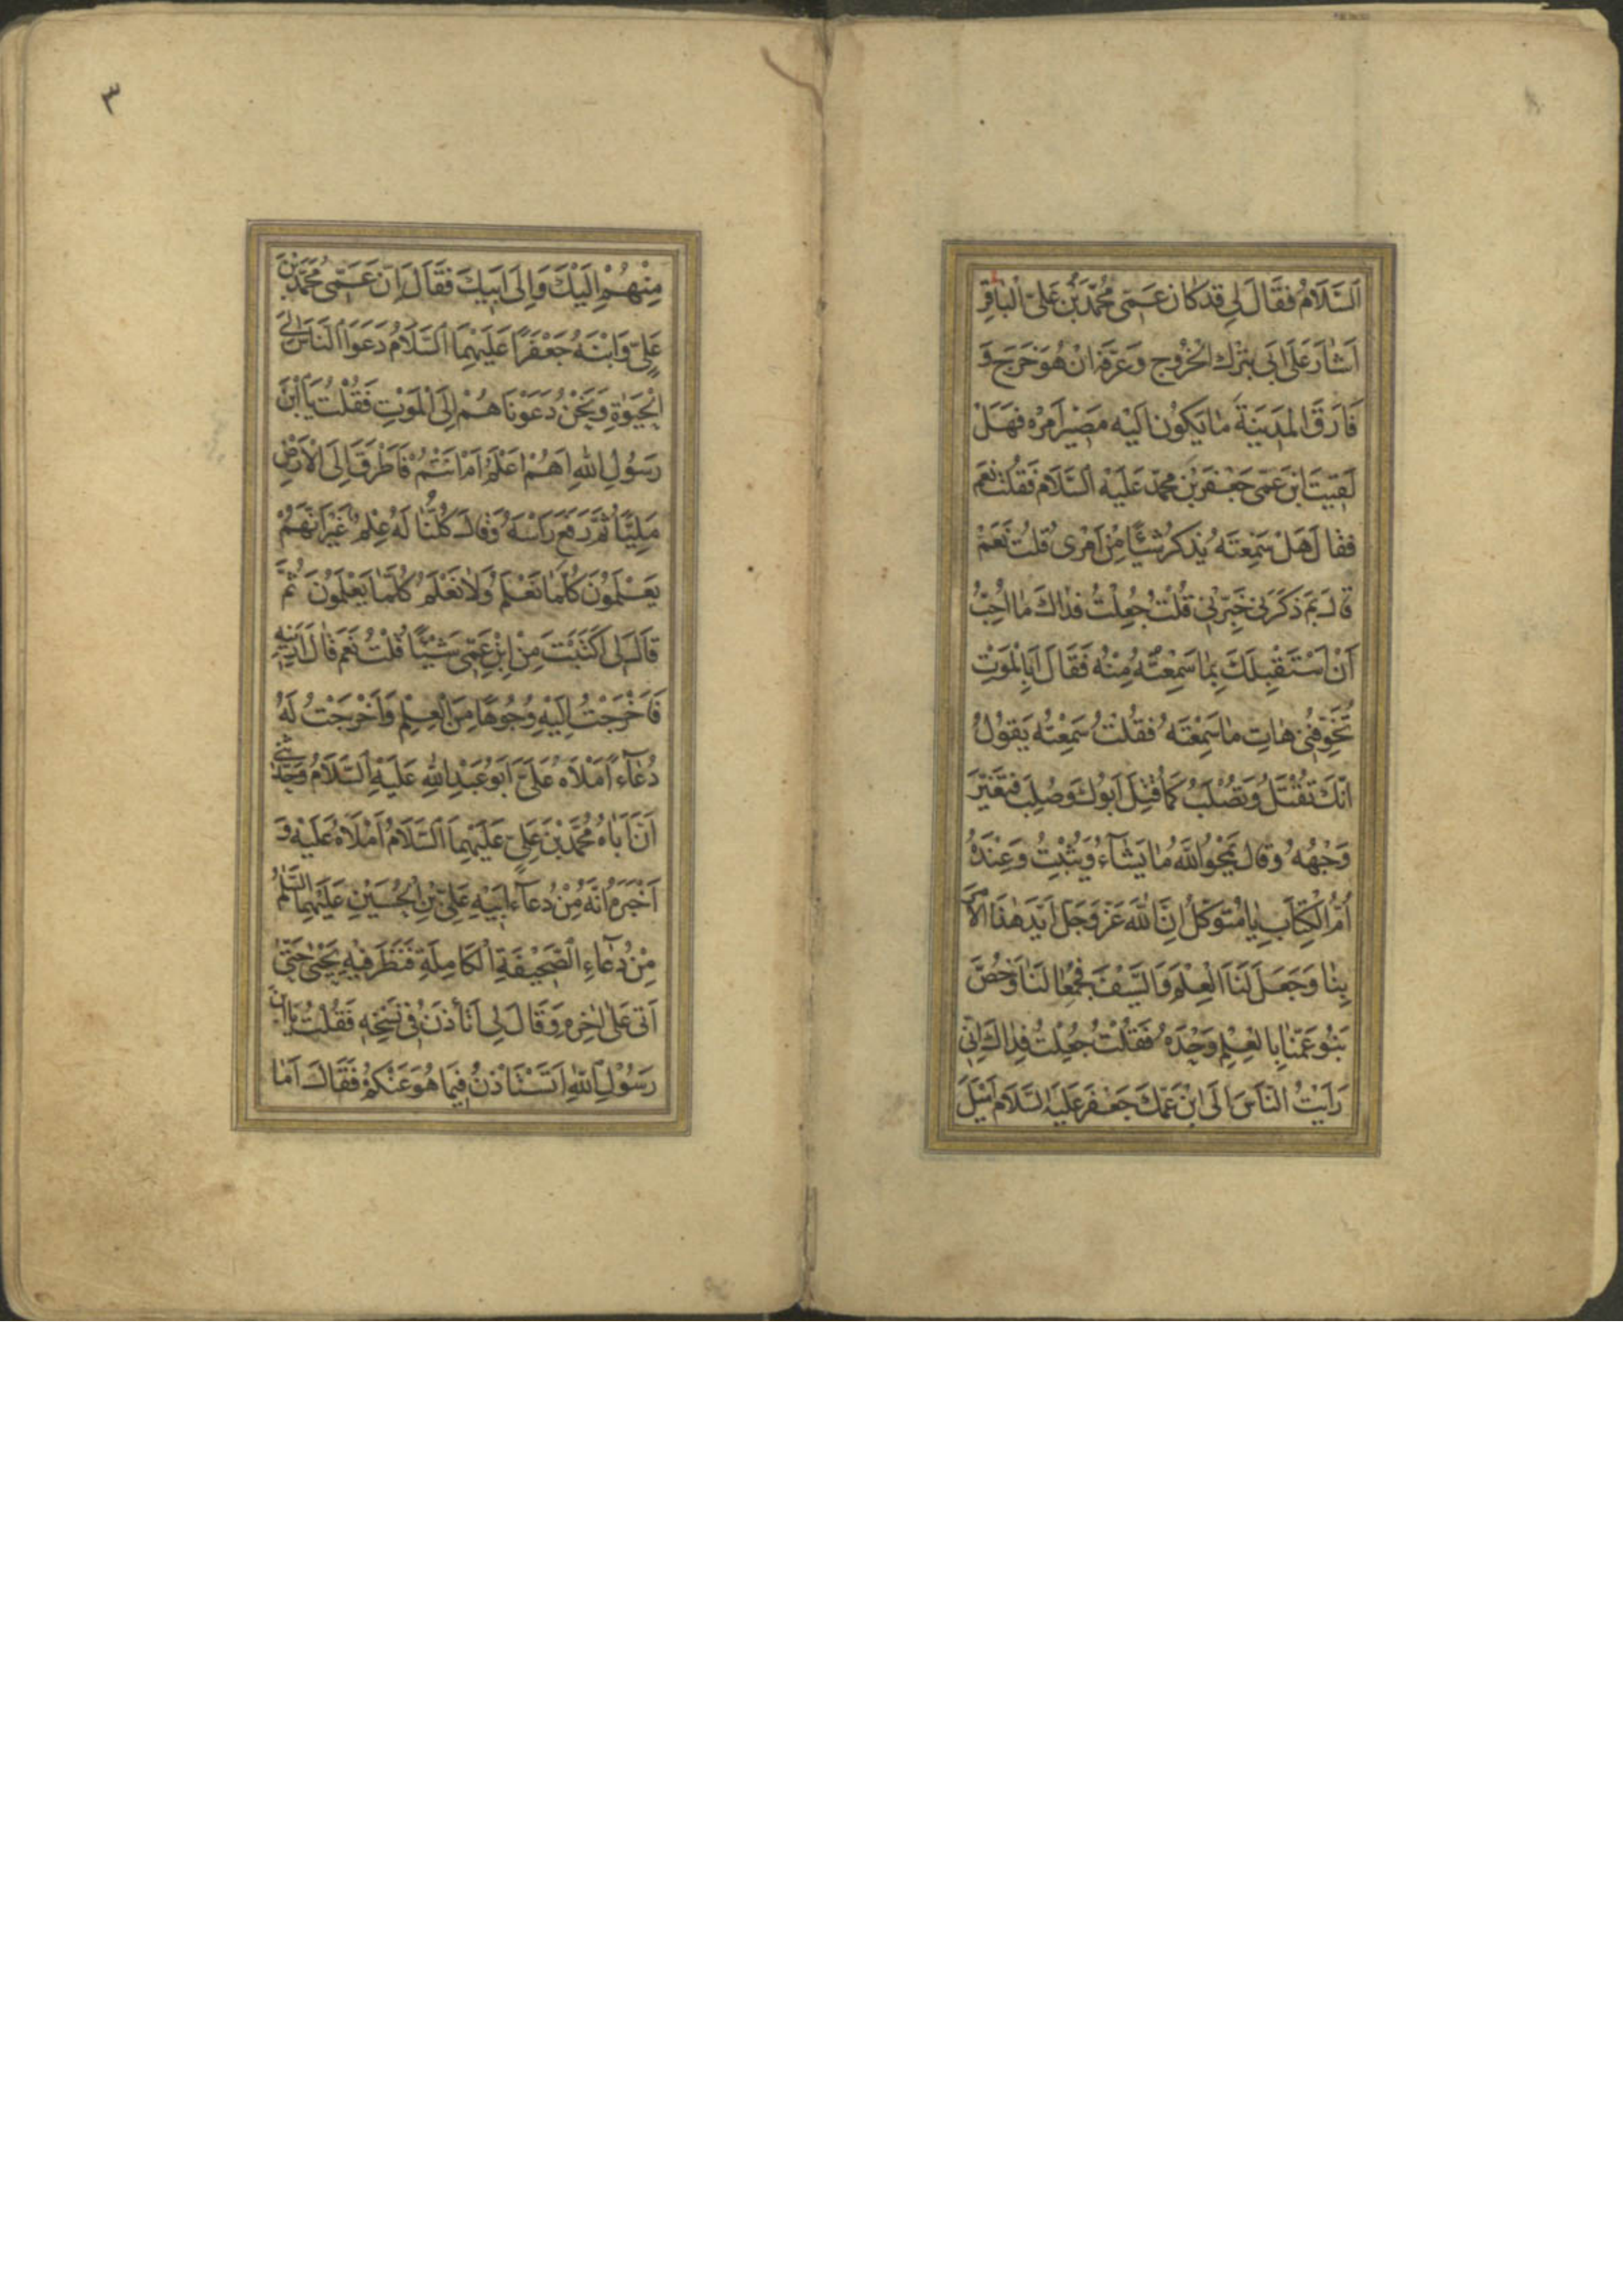 اَلسَّلَامُ فَقَالَ لِي قَدْ كَانَ عَمِّي مُحَمَّدُ بْنُ عَلِيٍّ الْبَاقِرُ
اَشَارَ عَلَى اَبِي بِتَرْكِ الْخُرُوجِ وَعَرَّفَهُ اِنْ هُوَ خَرَجَ وَ
فَارَقَ الْمَدِينَةَ مَا يَكُونُ اِلَيْهِ مَصِيرُ اَمْرِهِ فَهَلْ
لَقِيتَ ابْنَ عَمِّي جَعْفَرَ بْنَ مُحَمَّدٍ عَلَيْهِ السَّلَامُ فَقُلْتُ نَعَمْ
فَقَالَ هَلْ سَمِعْتَهُ يَذْكُرُ شَيْئًا مِنْ اَمْرِي قُلْتُ نَعَمْ
قَالَ بِمَ ذَكَرَنِي خَبِّرْنِي قُلْتُ جُعِلْتُ فِدَاكَ مَا اُحِبُّ
اَنْ اَسْتَقْبِلَكَ بِمَا سَمِعْتُهُ مِنْهُ فَقَالَ اَبِالْمَوْتِ
تُخَوِّفُنِي هَاتِ مَا سَمِعْتَهُ فَقُلْتُ سَمِعْتُهُ يَقُولُ
اِنَّكَ تُقْتَلُ وَتُصْلَبُ كَمَا قُتِلَ اَبُوكَ وَصُلِبَ فَتَغَيَّرَ
وَجْهُهُ وَقَالَ يَمْحُو اللّٰهُ مَا يَشَاءُ وَيُثْبِتُ وَعِنْدَهُ
اُمُّ الْكِتَابِ يَا مُتَوَكِّلُ اِنَّ اللّٰهَ عَزَّ وَجَلَّ اَيَّدَ هٰذَا الْاَمْرَ
بِنَا وَجَعَلَ لَنَا الْعِلْمَ وَالسَّيْفَ فَجُمِعَا لَنَا وَخُصَّ
بَنُو عَمِّنَا بِالْعِلْمِ وَحْدَهُ فَقُلْتُ جُعِلْتُ فِدَاكَ اِنِّي
رَاَيْتُ النَّاسَ اِلَى ابْنِ عَمِّكَ جَعْفَرٍ عَلَيْهِ السَّلَامُ اَمْيَلَ
٣
مِنْهُمْ اِلَيْكَ وَاِلَى اَبِيكَ فَقَالَ اِنَّ عَمِّي مُحَمَّدَ بْنَ
عَلِيٍّ وَابْنَهُ جَعْفَرًا عَلَيْهِمَا السَّلَامُ دَعَوَا النَّاسَ اِلَى
الْحَيٰوةِ وَنَحْنُ دَعَوْنَاهُمْ اِلَى الْمَوْتِ فَقُلْتُ يَا ابْنَ
رَسُولِ اللّٰهِ اَهُمْ اَعْلَمُ اَمْ اَنْتُمْ فَاَطْرَقَ اِلَى الْاَرْضِ
مَلِيًّا ثُمَّ رَفَعَ رَاْسَهُ وَقَالَ كُلُّنَا لَهُ عِلْمٌ غَيْرَ اَنَّهُمْ
يَعْلَمُونَ كُلَّمَا نَعْلَمُ وَلَا نَعْلَمُ كُلَّمَا يَعْلَمُونَ ثُمَّ
قَالَ لِي اَكَتَبْتَ مِنِ ابْنِ عَمِّي شَيْئًا قُلْتُ نَعَمْ قَالَ اَرِنِيهِ
فَاَخْرَجْتُ اِلَيْهِ وُجُوهًا مِنَ الْعِلْمِ وَاَخْرَجْتُ لَهُ
دُعَاءً اَمْلَاهُ عَلَيَّ اَبُو عَبْدِ اللّٰهِ عَلَيْهِ السَّلَامُ وَحَدَّثَنِي
اَنَّ اَبَاهُ مُحَمَّدَ بْنَ عَلِيٍّ عَلَيْهِمَا السَّلَامُ اَمْلَاهُ عَلَيْهِ وَ
اَخْبَرَهُ اَنَّهُ مِنْ دُعَاءِ اَبِيهِ عَلِيِّ بْنِ الْحُسَيْنِ عَلَيْهِمَا السَّلٰمُ
مِنْ دُعَاءِ الصَّحِيفَةِ الْكَامِلَةِ فَنَظَرَ فِيهِ يَحْيٰى حَتّٰى
اَتٰى عَلٰى اٰخِرِهِ وَقَالَ لِي اَتَاْذَنُ فِي نَسْخِهِ فَقُلْتُ يَا ابْنَ
رَسُولِ اللّٰهِ اَتَسْتَاْذِنُ فِيمَا هُوَ عَنْكُمْ فَقَالَ اَمَا